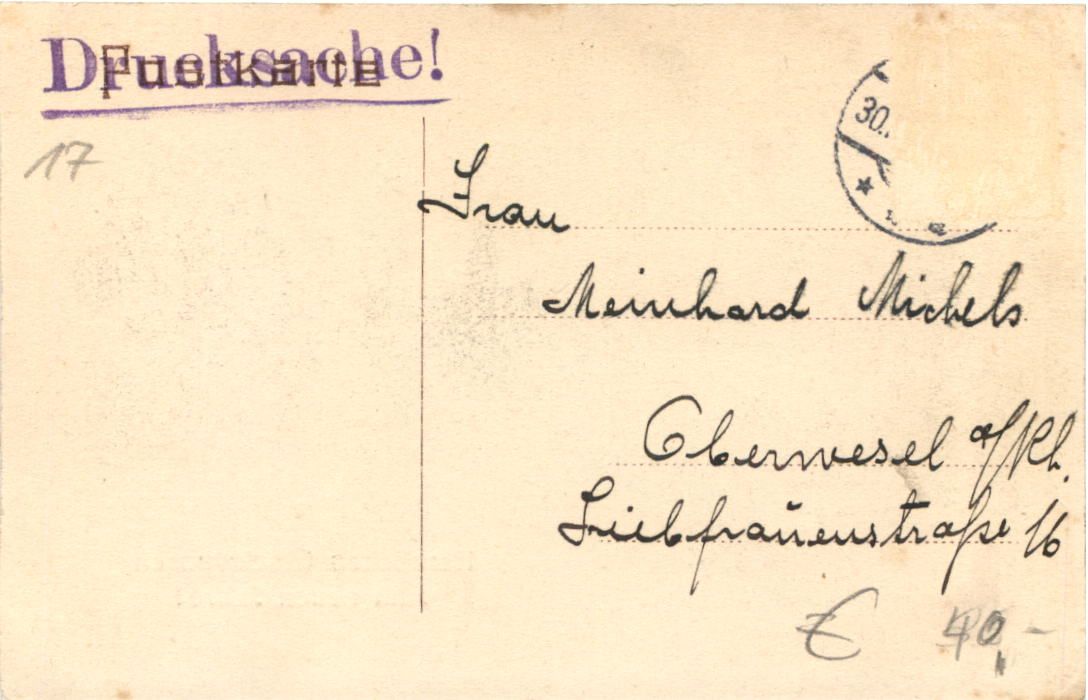 Drucksache!
Postkarte
17
30.
Frau
Meinhard Michels
Oberwesel a/Rh.
Liebfrauenstraße 16
€